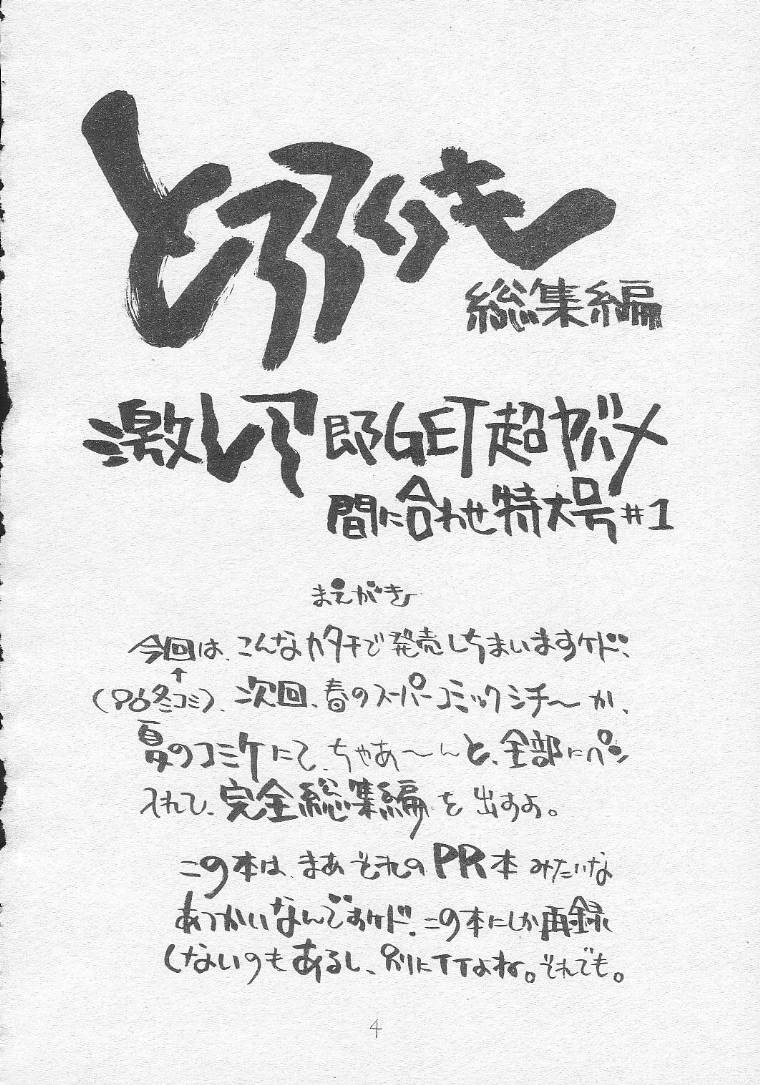 とろろいも
総集編
激レア即GET超ヤバメ
間に合わせ特大号#1
まえがき
今回は、こんなカタチで発売しちまいますケド、
↑
('96冬コミ)、次回、春のスーパーコミックシチ〜か、
夏のコミケにて、ちゃあ〜んと、全部にペン
入れて、完全総集編を出すよ。
この本は、まあそれのPR本みたいな
あつかいなんですケド、この本にしか再録
しないのもあるし、別にイイよね。それでも。
4